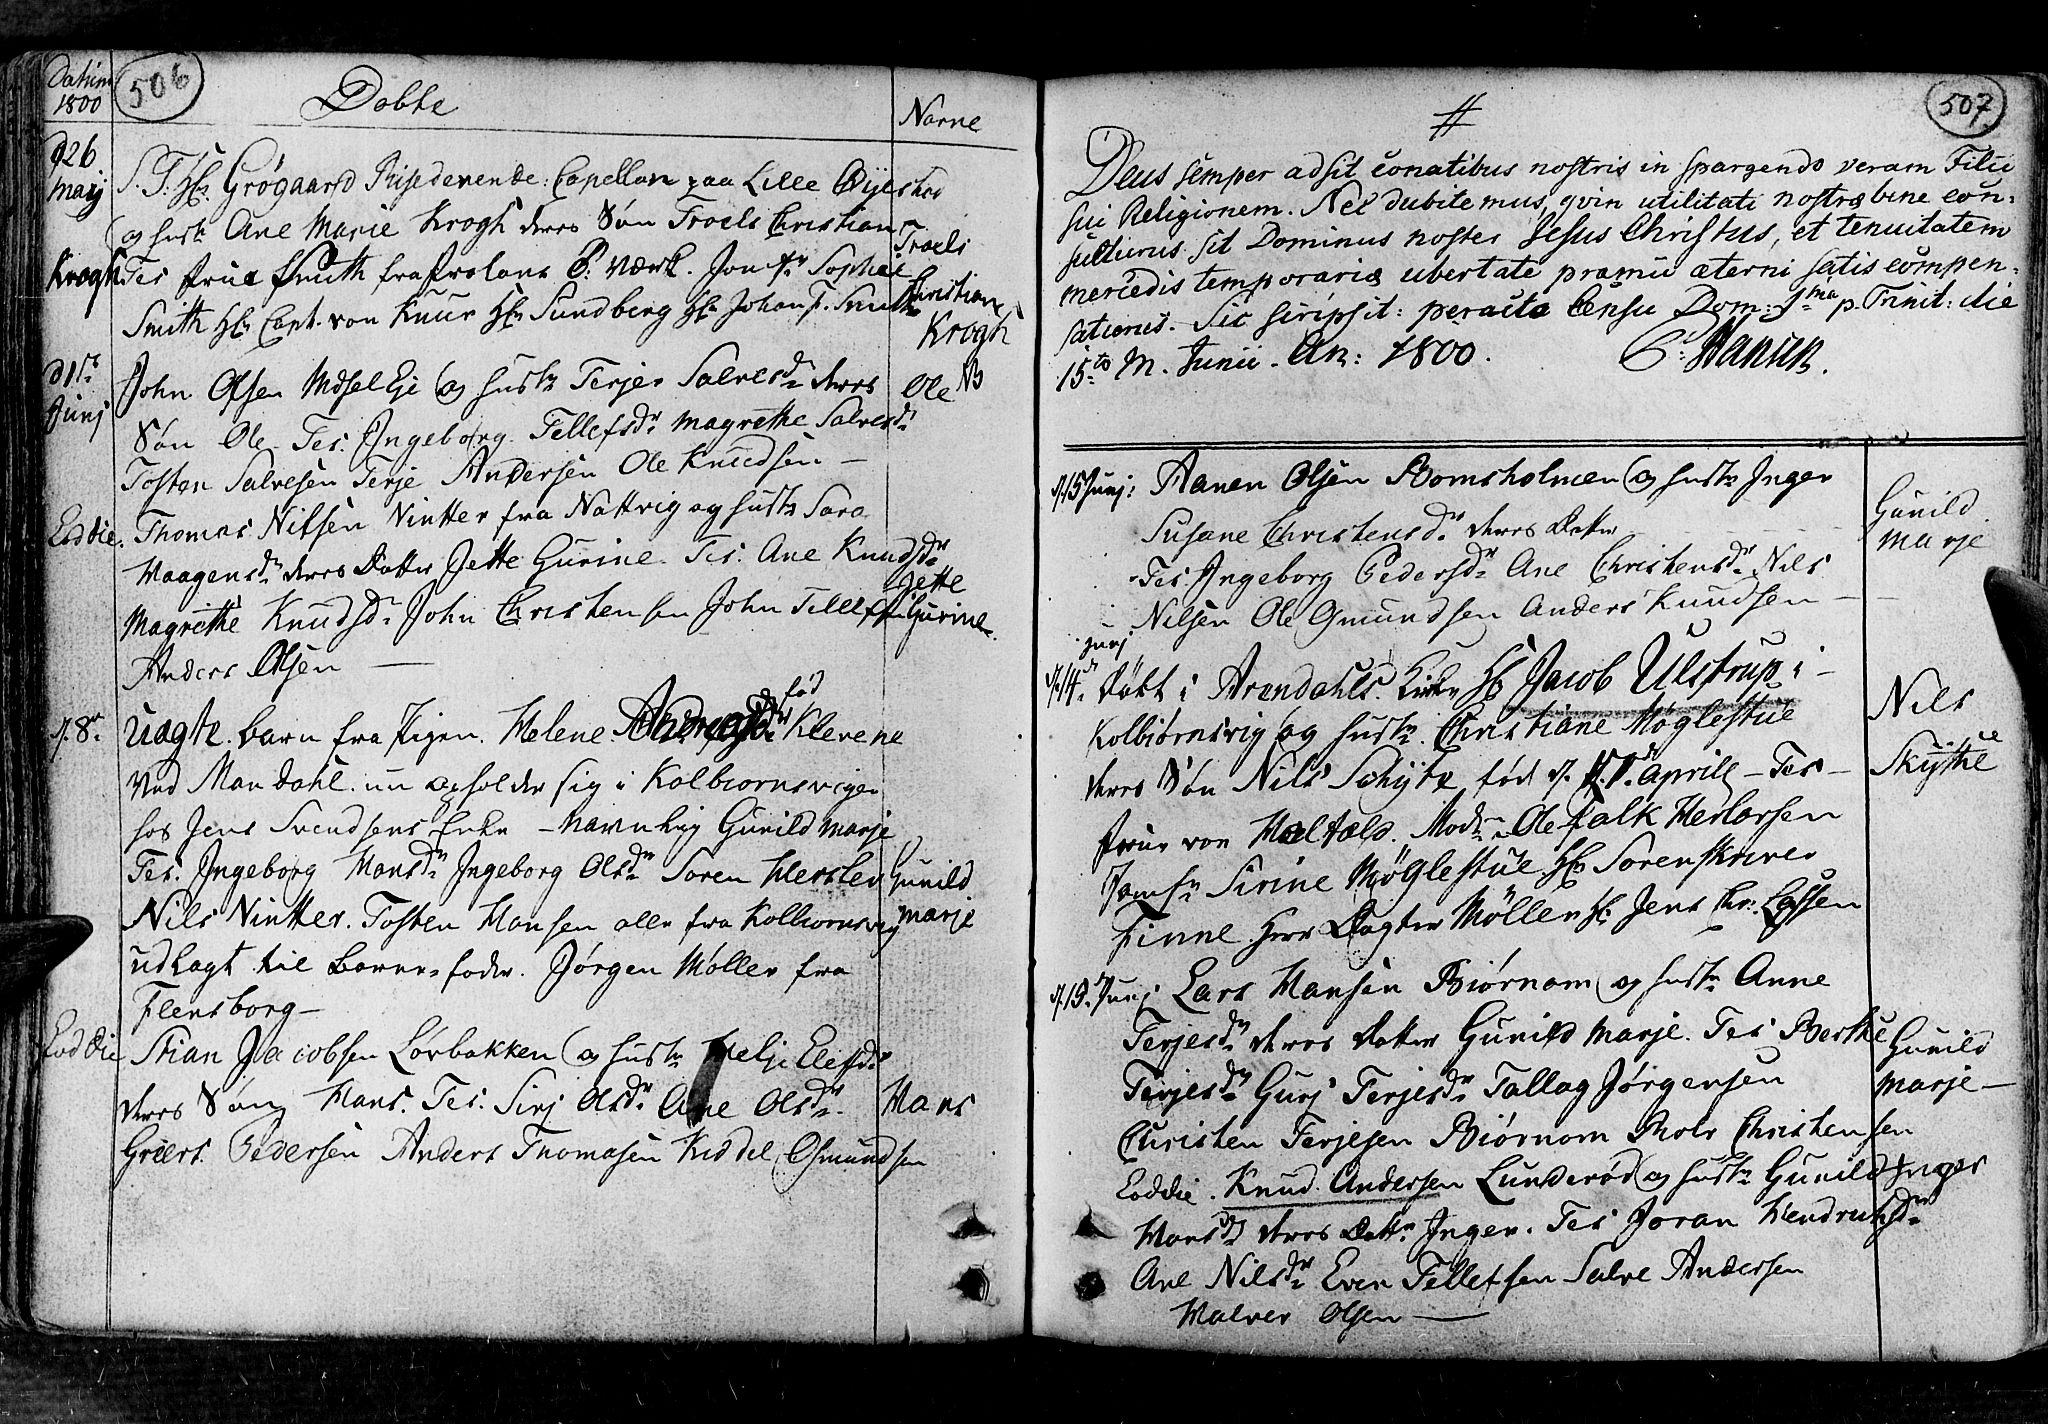 Datum
1800
506
Døbte
Navne
d 26
Maij
S. T. Hr. Grøgaard Residerende: Capellan paa Lille
og hustr Ane Marie Krogh deres Søn Troels Christian
Krogh Tes frue Smith fra Frolans P. Værk. Jomfr Sophie
Smith Hr. Capt. von Knur Hr. Sundberg Hr. Johan F. Smith
Troels
Christian
Krogh
d 1ste
Junj
John Olsen Mosel Eje og hustr Terjer Salvesdr deres
Søn Ole. Tes. Ingeborg Tellefsdr Magrethe Salvesdr
Tosten Salvesen Terje Andersen Ole Knudsen —
Ole
NB
Eoddie. Thomas Nilsen Vintter fra Nattvig og hustr Sara
Haagensdr deres Datter Jette Gurine. Tes. Ane Knudsdr
Magrethe Knudsdr John Christensen John Tellefsen
Anders Olsen —
Jette
Gurine
d. 8de
Uægte barn fra Pigen Helene fød Klevene
ved Mandahl. nu opholder sig i Kolbiornsvigen
hos Jens Svendsens Enke — navnlig Gunild Marje
Tes. Ingeborg Hansdr Ingeborg Olsdr Soren Herslev
Nils Vintter. Tosten Hansen alle fra Kolbiornsvig
udlagt til Barne-fader. Jørgen Møller fra
Flensborg —
Gunild
Marje
Eoddie
Stian Jacobsen Løvbakken og hustr Helje Elefsdr
deres Søn Hans. Tes. Sirj Olsdr Ane Olsdr
Greers Pedersen Anders Thomasen Kiddel Osmundsen
Hans
507
#
Deus semper adsit conatibus nostris in spargendo veram Filii
sui Religionem. Nec dubitemus, qvin utilitati nostræ bene con-
sulturus sit Dominus noster Jesus Christus, et tenuitatem
mercedis temporariæ ubertate præmii æterni satis compen-
saturus. Sic scripsit: peracto Censu Dom: 1ma p. Trinit: die
15to M. Junii. An: 1800.
C. Hansen.
d. 15 Junj: Aanen Olsen Bomsholmen og hustr Inger
Susane Christensdr deres Datter
Tes. Ingeborg Pedersdr Ane Christensdr Nils
Nilsen Ole Gmundsen Anders Knudsen —
Gunild
Marje
Junj
d. 14de Døbt i Arendahls Kirke Hr Jacob Ulstrup i
Kolbiørnsvig og hustr. Christiane Møglestue
deres Søn Nils Schyte fød d. aprill — Tes —
frue von Modr Ole Falk
Jomfr Sirine Møglestue Hr. Sorenskriver
Finne Herr Dogter Møller Hr. Jens Chr: Lassen
Nils
Skythe
d. 19. Junj Lars Hansen Biørnom og hustr Anne
Terjesdr deres Datter Gunild Marje. Tes Berthe
Terjesdr Gurj Terjesdr Tallag Jørgensen
Christen Terjesen Biørnom Roer Christensen
Gunild
Marje —
Eoddie. Knud Andersen Lunderød og hustr Gunild
Hansdr deres Dattr Inger. Tes Joran Hendrichsdr
Ane Nilsdr Even Tellefsen Salve Andersen
Halver Olsen —
Inger